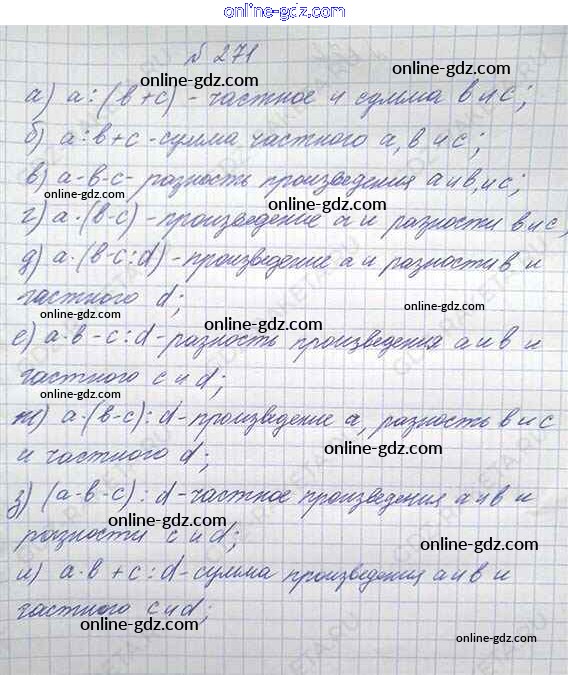 online-gdz.com
№ 271
online-gdz.com
а) a:(в+с) - частное и сумма в и с;
online-gdz.com
б) а:в+с - сумма частного а, в и с;
online-gdz.com
в) а·в-с- разность произведения а и в, и с;
online-gdz.com
online-gdz.com
г) а·(в-с) - произведение а и разности в и с,
online-gdz.com
д) а·(в-с:d) - произведение а и разности в и
частного d;
online-gdz.com
online-gdz.com
е) а·в-с:d - разность произведения а и в и
частного с и d;
online-gdz.com
online-gdz.com
ж) а·(в-с):d - произведение а, разность в и с
online-gdz.com
и частного d;
online-gdz.com
з) (а·в-с):d - частное произведения а и в и
online-gdz.com
разности с и d;
online-gdz.com
и) а·в+с:d - сумма произведения а и в и
частного с и d;
online-gdz.com
online-gdz.com